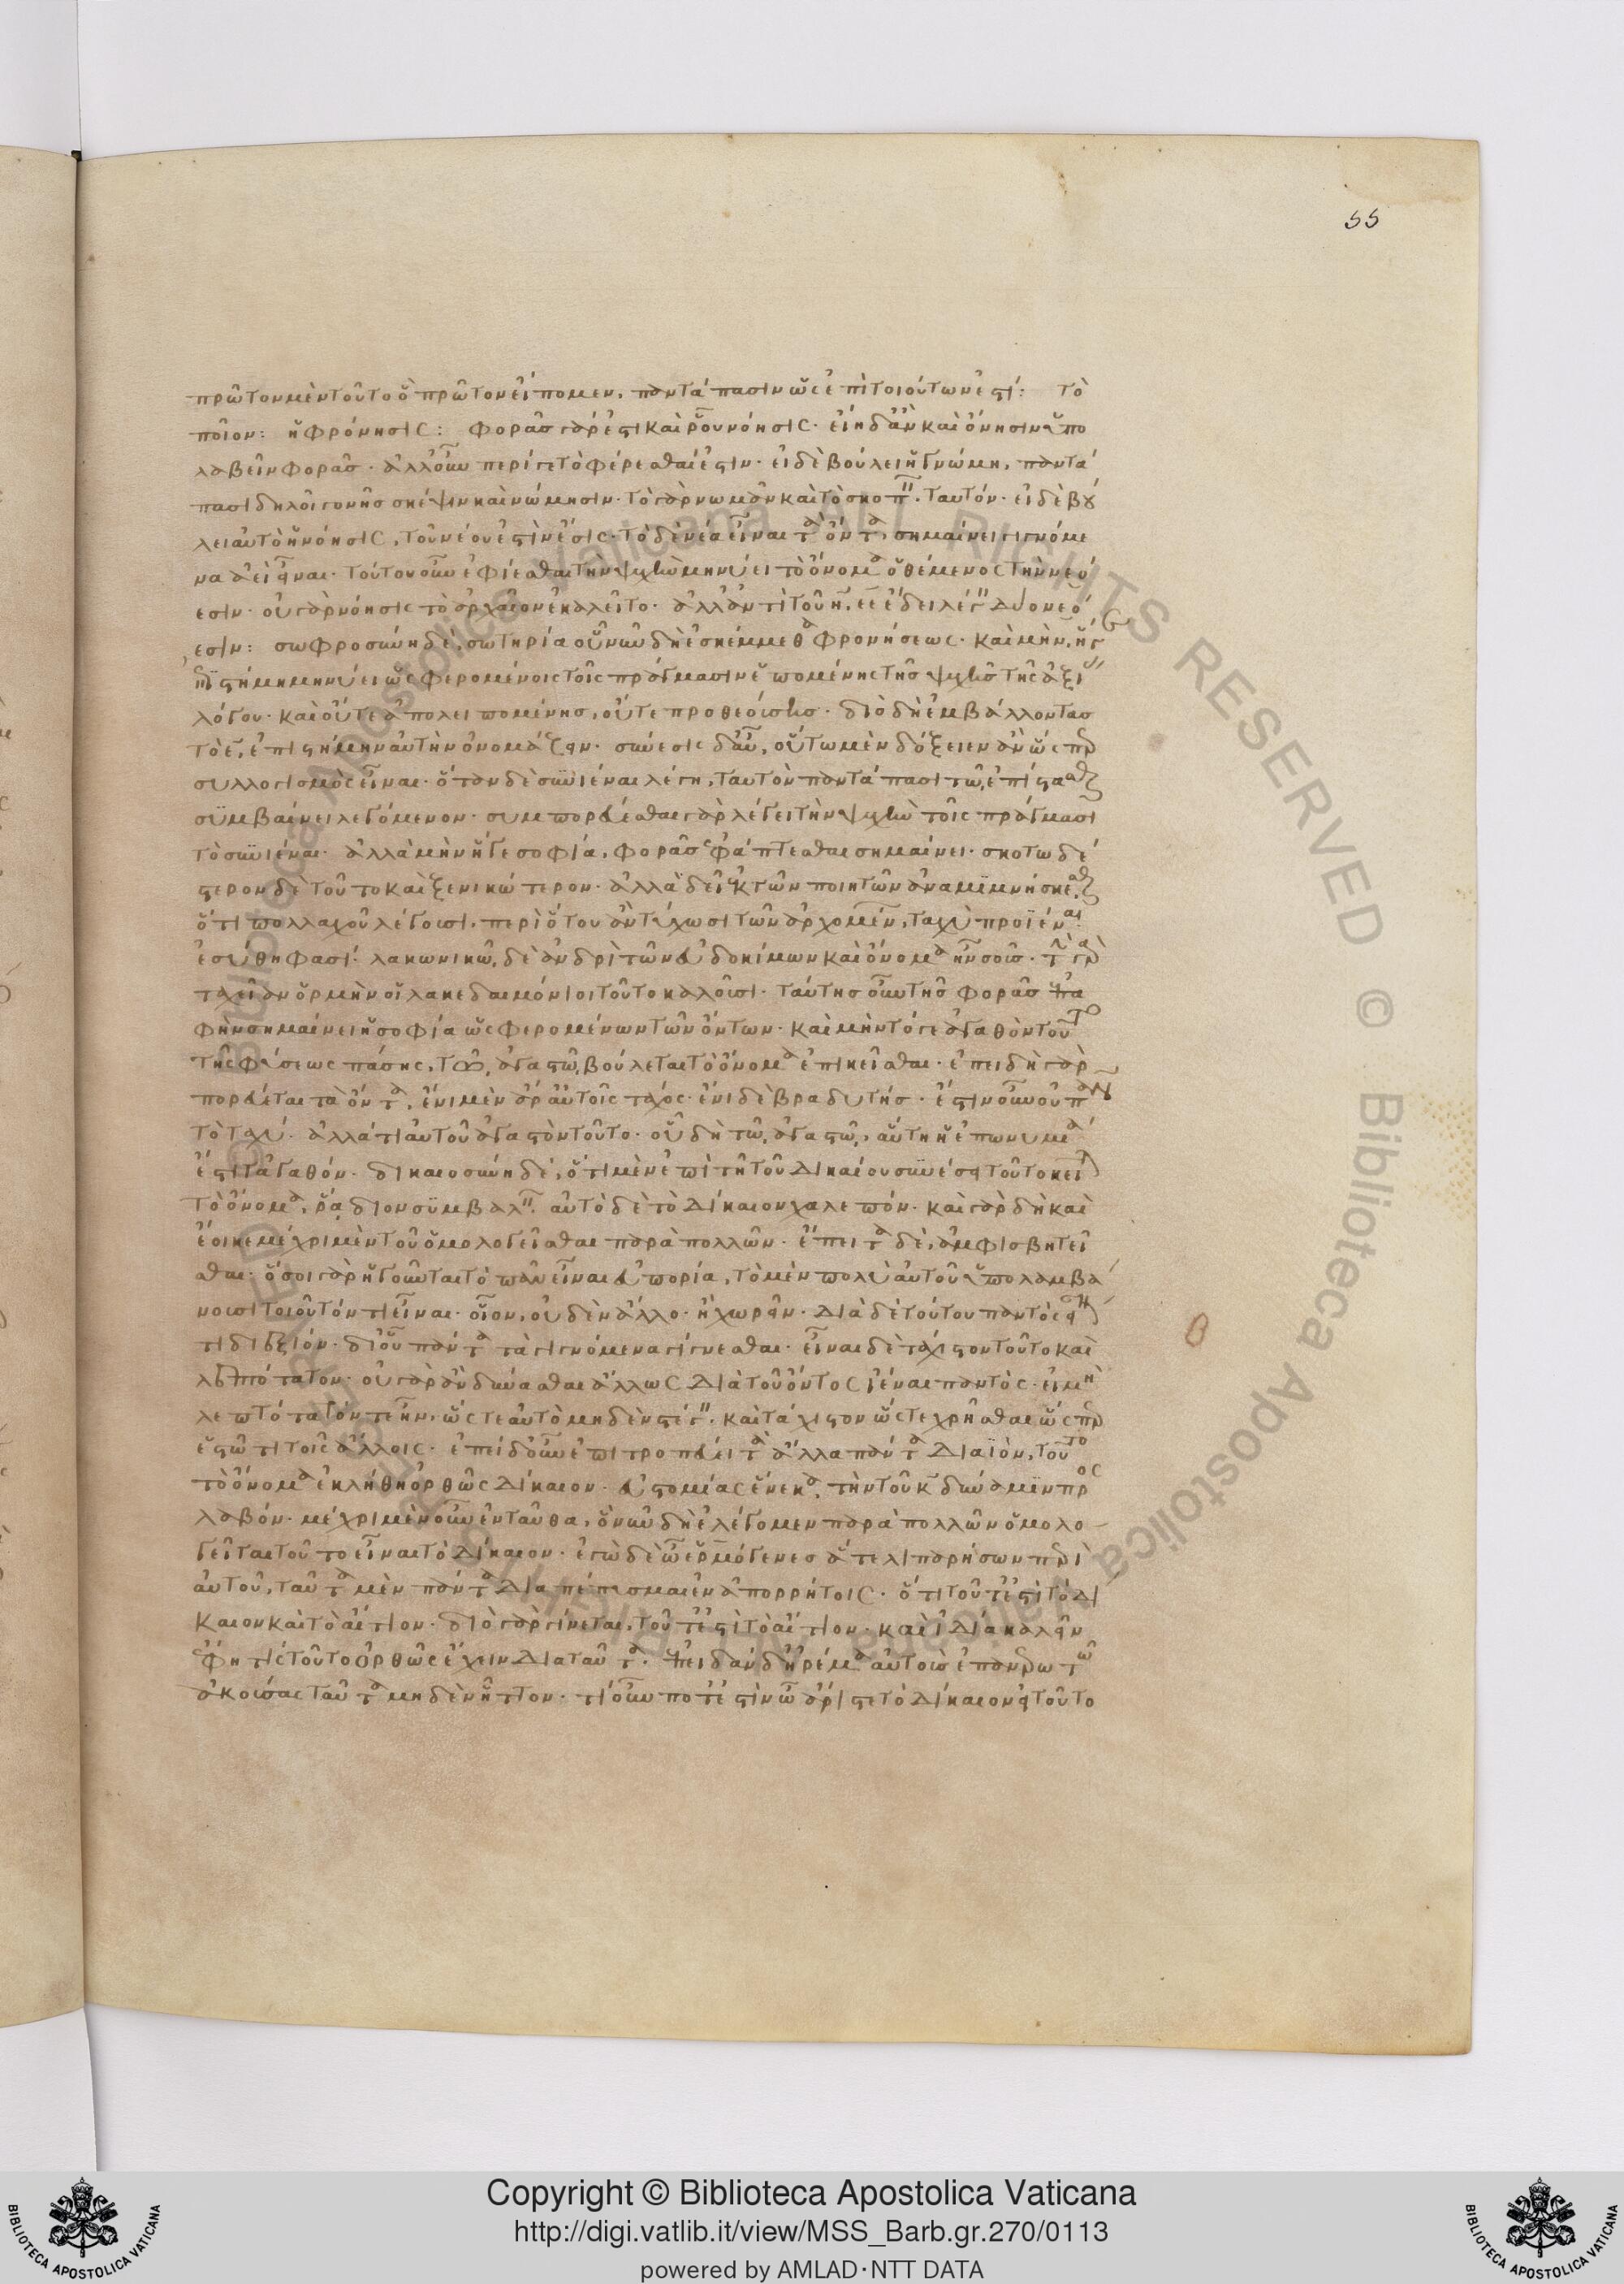 55
πρῶτον μὲν τοῦτο ὃ πρῶτον εἴπομεν, παντάπασιν ὡς ἐπὶ τοιούτων ἐστί: τὸ
ποῖον: ἡ φρόνησις: φορᾶς γάρ ἐστι καὶ ῥοῦ νόησις· εἴη δ' ἂν καὶ ὄνησιν ὑπο
λαβεῖν φορᾶς· ἀλλ' οὖν περί γε τὸ φέρεσθαί ἐστιν· εἰ δὲ βούλει ἡ γνώμη, παντά
πασι δηλοῖ γονῆς σκέψιν καὶ νώμησιν· τὸ γὰρ νωμᾶν καὶ τὸ σκοπ ταυτόν· εἰ δὲ βού
λει αὐτὸ ἡ νόησις, τοῦ νέου ἐστὶν ἕσις· τὸ δὲ νέα εἶναι τὰ ὄντα, σημαίνει γιγνόμε
να ἀεὶ εἶναι· τούτου οὖν ἐφίεσθαι τὴν ψυχὴν μηνύει τὸ ὄνομα ὁ θέμενος τὴν νεό
εσιν· οὐ γὰρ νόησις τὸ ἀρχαῖον ἐκαλεῖτο· ἀλλ' ἀντὶ τοῦ η, εε ἔδει λέγ δύο νεό
εσιν: σωφροσύνη δέ, σωτηρία οὗ νῦν δὴ ἐσκέμμεθα φρονήσεως· καὶ μὴν, ἥ γε
ἐπιστήμη μηνύει ὡς φερομένοις τοῖς πράγμασιν ἑπομένης τῆς ψυχῆς τῆς ἀξί
λόγου· καὶ οὔτε ἀπολειπομένης, οὔτε προθεούσης· διὸ δὴ ἐμβάλλοντας
τὸ ε, ἐπιστήμην αὐτὴν ὀνομάζειν· σύνεσις δ' αὖ, οὕτω μὲν δόξειεν ἂν ὥσπερ
συλλογισμὸς εἶναι· ὅταν δὲ συνιέναι λέγῃ, ταυτὸν παντάπασι τῷ ἐπίστασθαι
συμβαίνει λεγόμενον· συμπορεύεσθαι γὰρ λέγει τὴν ψυχὴν τοῖς πράγμασι
τὸ συνιέναι· ἀλλὰ μὴν ἥ γε σοφία, φορᾶς ἐφάπτεσθαι σημαίνει· σκοτωδέ
στερον δὲ τοῦτο καὶ ξενικώτερον· ἀλλὰ δεῖ ἐκ τῶν ποιητῶν ἀναμιμνήσκεσθαι
ὅτι πολλαχοῦ λέγουσι, περὶ ὅτου ἂν τύχωσι τῶν ἀρχομέν, ταχὺ προϊέναι
ἐσύθη φασί· λακωνικῷ δὲ ἀνδρὶ τῶν εὐδοκίμων καὶ ὄνομα ἦν σοῦς· τὴν γὰρ
ταχεῖαν ὁρμὴν οἱ λακεδαιμόνιοι τοῦτο καλοῦσι· ταύτης οὖν τῆς φορᾶς ἐπα
φὴν σημαίνει ἡ σοφία ὡς φερομένων τῶν ὄντων· καὶ μὴν τό γε ἀγαθὸν τοῦτο
τῆς φύσεως πάσης, τῷ ἀγαστῷ βούλεται τὸ ὄνομα ἐπικεῖσθαι· ἐπειδὴ γὰρ
πορεύεται τὰ ὄντα, ἔνι μὲν ἄρ' αὐτοῖς τάχος· ἔνι δὲ βραδυτής· ἔστιν οὖν οὐ πᾶν
τὸ ταχύ· ἀλλά τι αὐτοῦ ἀγαστὸν τοῦτο· οὗ δὴ τῷ ἀγαστῷ, αὕτη ἡ ἐπωνυμία
ἐστι τἀγαθόν· δικαιοσύνη δέ, ὅτι μὲν ἐπὶ τῇ τοῦ δικαίου συνέσει τοῦτο κεῖται
τὸ ὄνομα, ῥᾴδιον συμβαλ· αὐτὸ δὲ τὸ δίκαιον χαλεπόν· καὶ γὰρ δὴ καὶ
ἔοικε μέχρι μὲν του ὁμολογεῖσθαι παρὰ πολλῶν· ἔπειτα δὲ, ἀμφισβητεῖ
σθαι· ὅσοι γὰρ ἡγοῦνται τὸ πᾶν εἶναι ἐν πορείᾳ, τὸ μὲν πολὺ αὐτοῦ ὑπολαμβά
νουσι τοιοῦτόν τι εἶναι· οἷον, οὐδὲν ἄλλο· ἢ χωρεῖν· διὰ δὲ τούτου παντὸς εἶναί
τι διεξιόν· δι' οὗ πάντα τὰ γιγνόμενα γίγνεσθαι· εἶναι δὲ τάχιστον τοῦτο καὶ
λεπτότατον· οὐ γὰρ ἂν δύνασθαι ἄλλως διὰ τοῦ ὄντος ἰέναι παντός· εἰ μὴ
λεπτότατόν τε ἦν, ὥστε αὐτὸ μηδὲν στέγ· καὶ τάχιστον ὥστε χρῆσθαι ὥσπερ
ἑστῶτι τοῖς ἄλλοις· ἐπεὶ δ' οὖν ἐπιτροπεύει τὰ ἄλλα πάντα διαϊόν, τοῦτο
τὸ ὄνομα ἐκλήθη ὀρθῶς δίκαιον· εὐστομίας ἕνεκα, τὴν τοῦ κ δύναμιν προσ
λαβόν· μέχρι μὲν οὖν ἐνταῦθα, ὃ νῦν δὴ ἐλέγομεν παρὰ πολλῶν ὁμολο
γεῖται τοῦτο εἶναι τὸ δίκαιον· ἐγὼ δὲ ὦ ἑρμόγενες ἅτε λιπαρήσων περὶ
αὐτοῦ, ταῦτα μὲν πάντα διαπέπυσμαι ἐν ἀπορρήτοις· ὅτι τοῦτ' ἐστὶ τὸ δί
καιον καὶ τὸ αἴτιον· διὸ γὰρ γίνεται, τοῦτ' ἐστὶ τὸ αἴτιον· καὶ ἰδίᾳ καλεῖν
ἔφη τις τοῦτο ὀρθῶς ἔχειν διὰ ταῦτα· ἐπειδὰν δ' ἠρέμα αὐτοὺς ἐπανερωτῶ
ἀκούσας ταῦτα μηδὲν ἧττον· τί οὖν ποτέ ἐστὶν ὦ ἄριστε τὸ δίκαιον εἰ τοῦτο
Copyright © Biblioteca Apostolica Vaticana
http://digi.vatlib.it/view/MSS_Barb.gr.270/0113
powered by AMLAD·NTT DATA